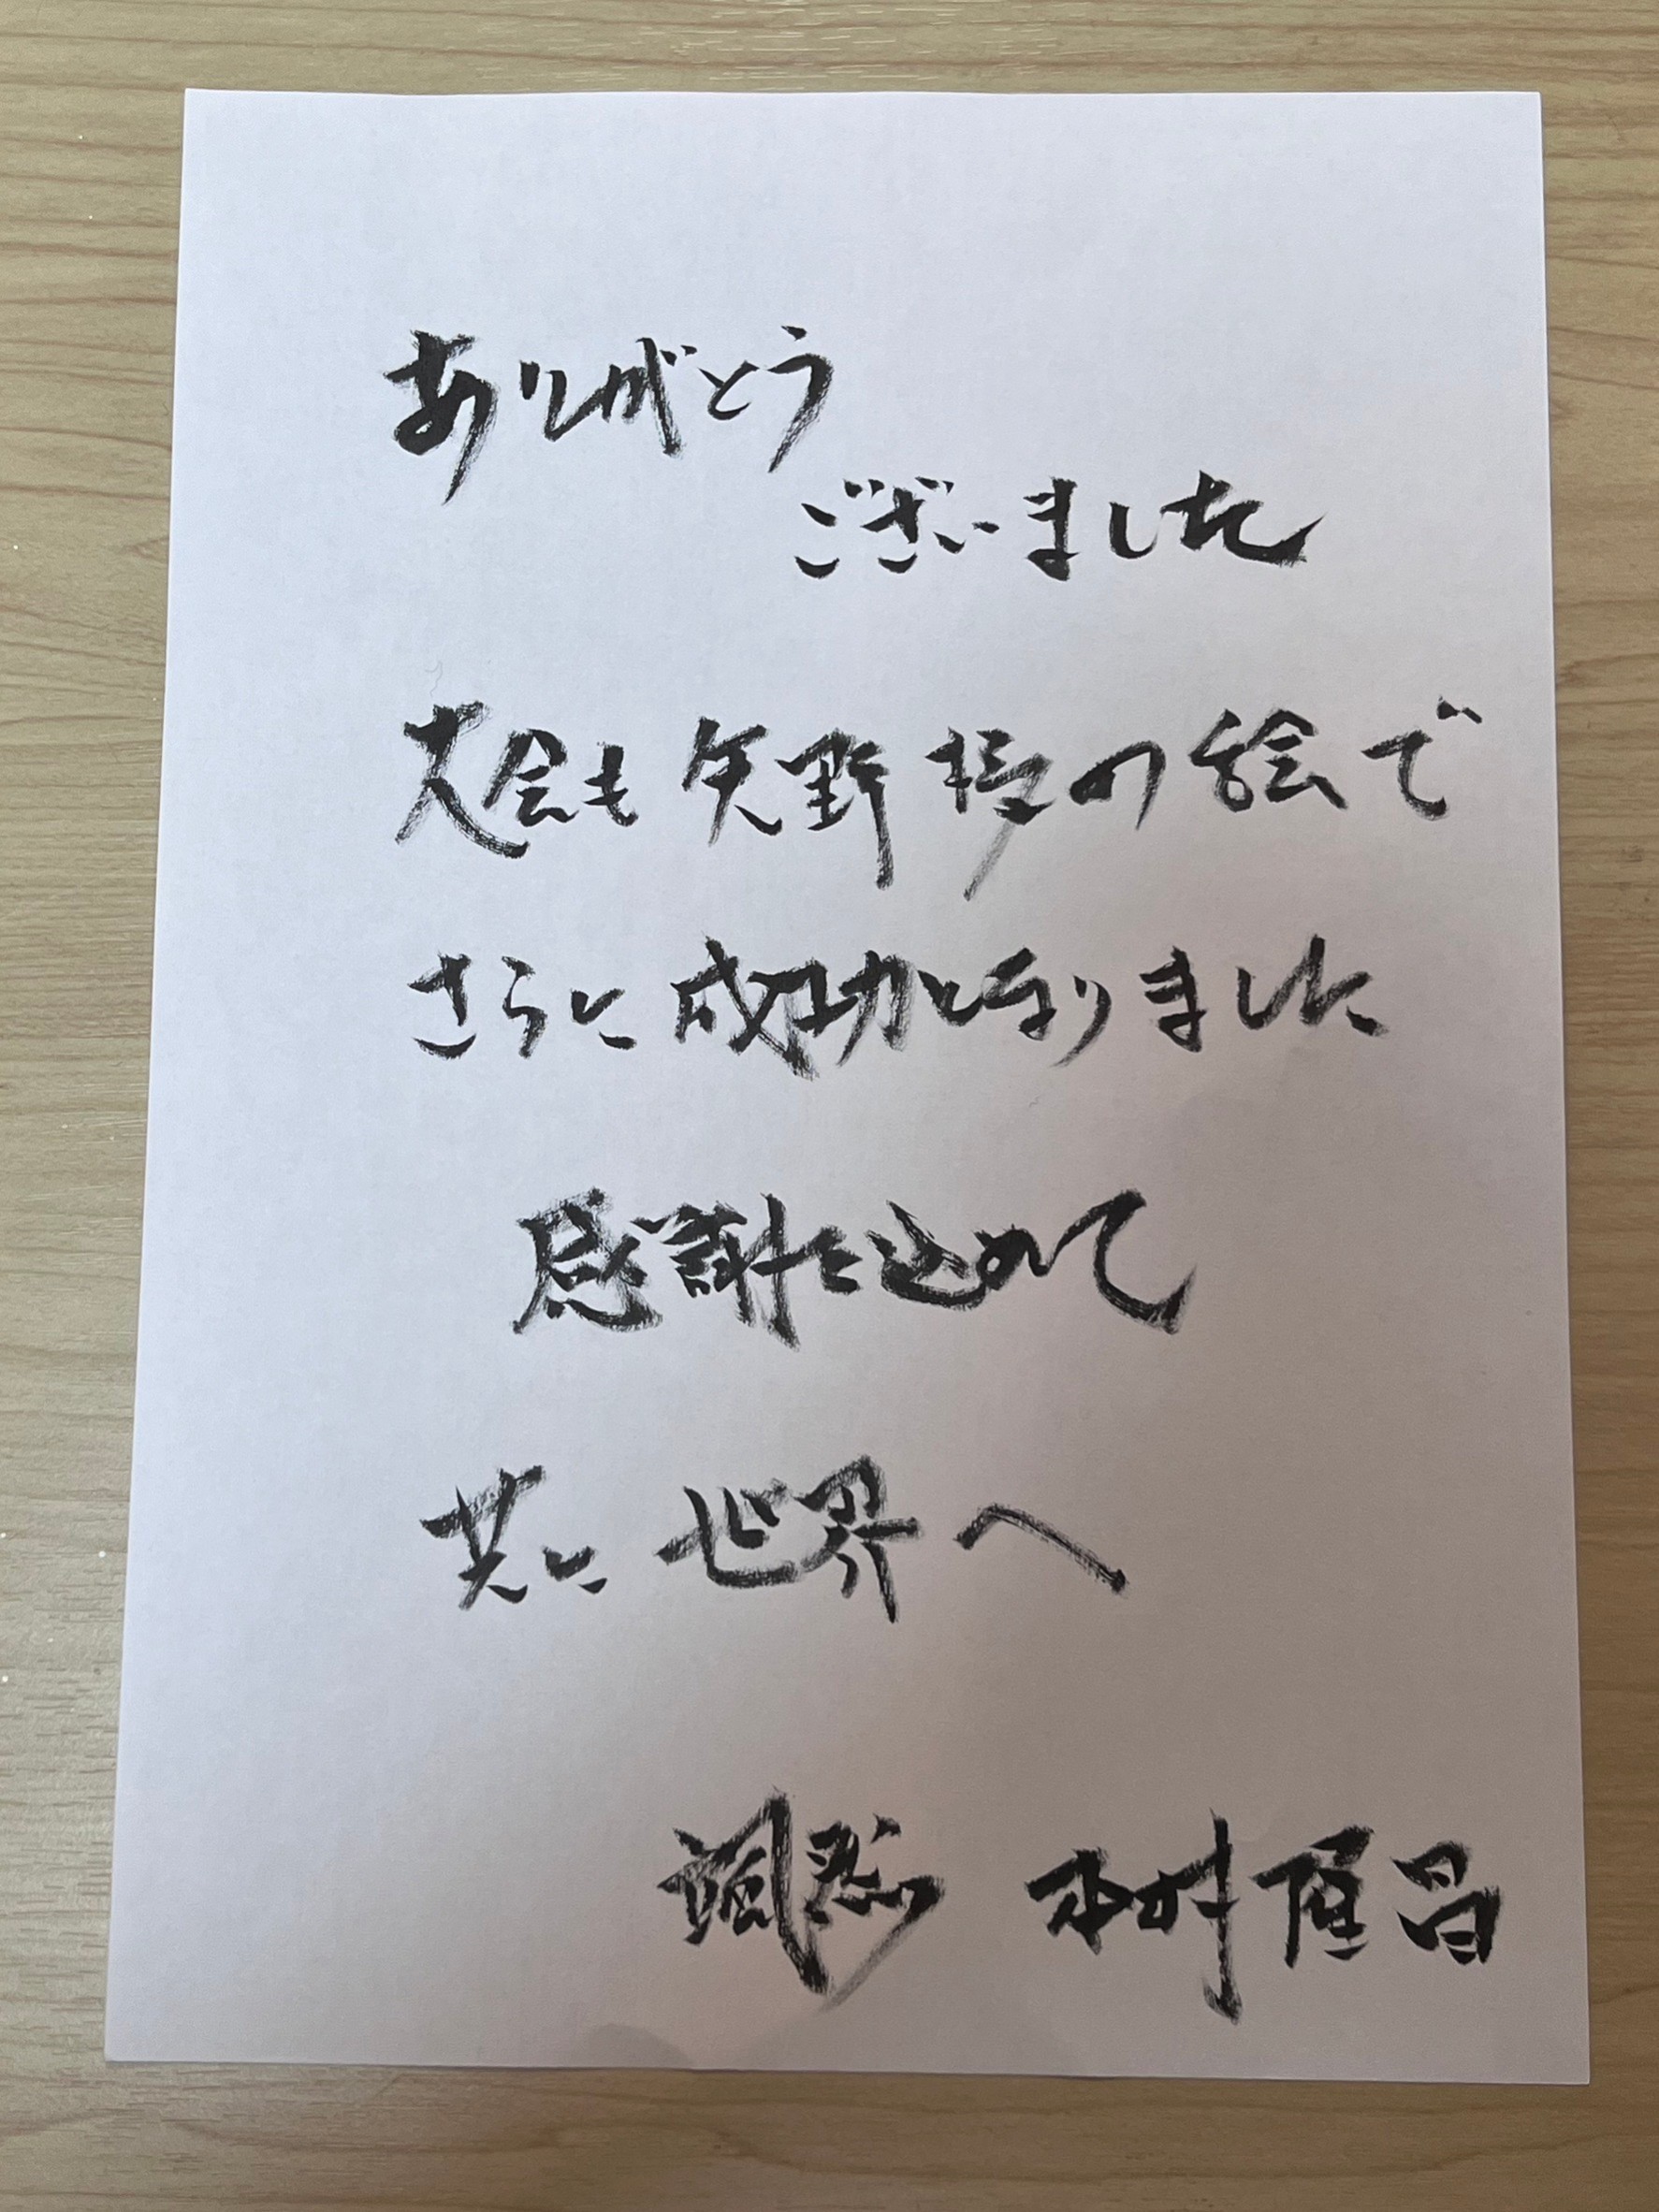 ありがとう
ございました
大会も矢野様の絵で
さらに成功となりました
感謝を込めて
共に世界へ
颯忍 木村 昌